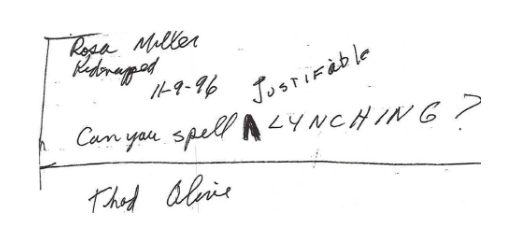 Rosa Miller
Kidnapped
11-9-96 Justifiable
Can you spell ∧ LYNCHING?
Thad